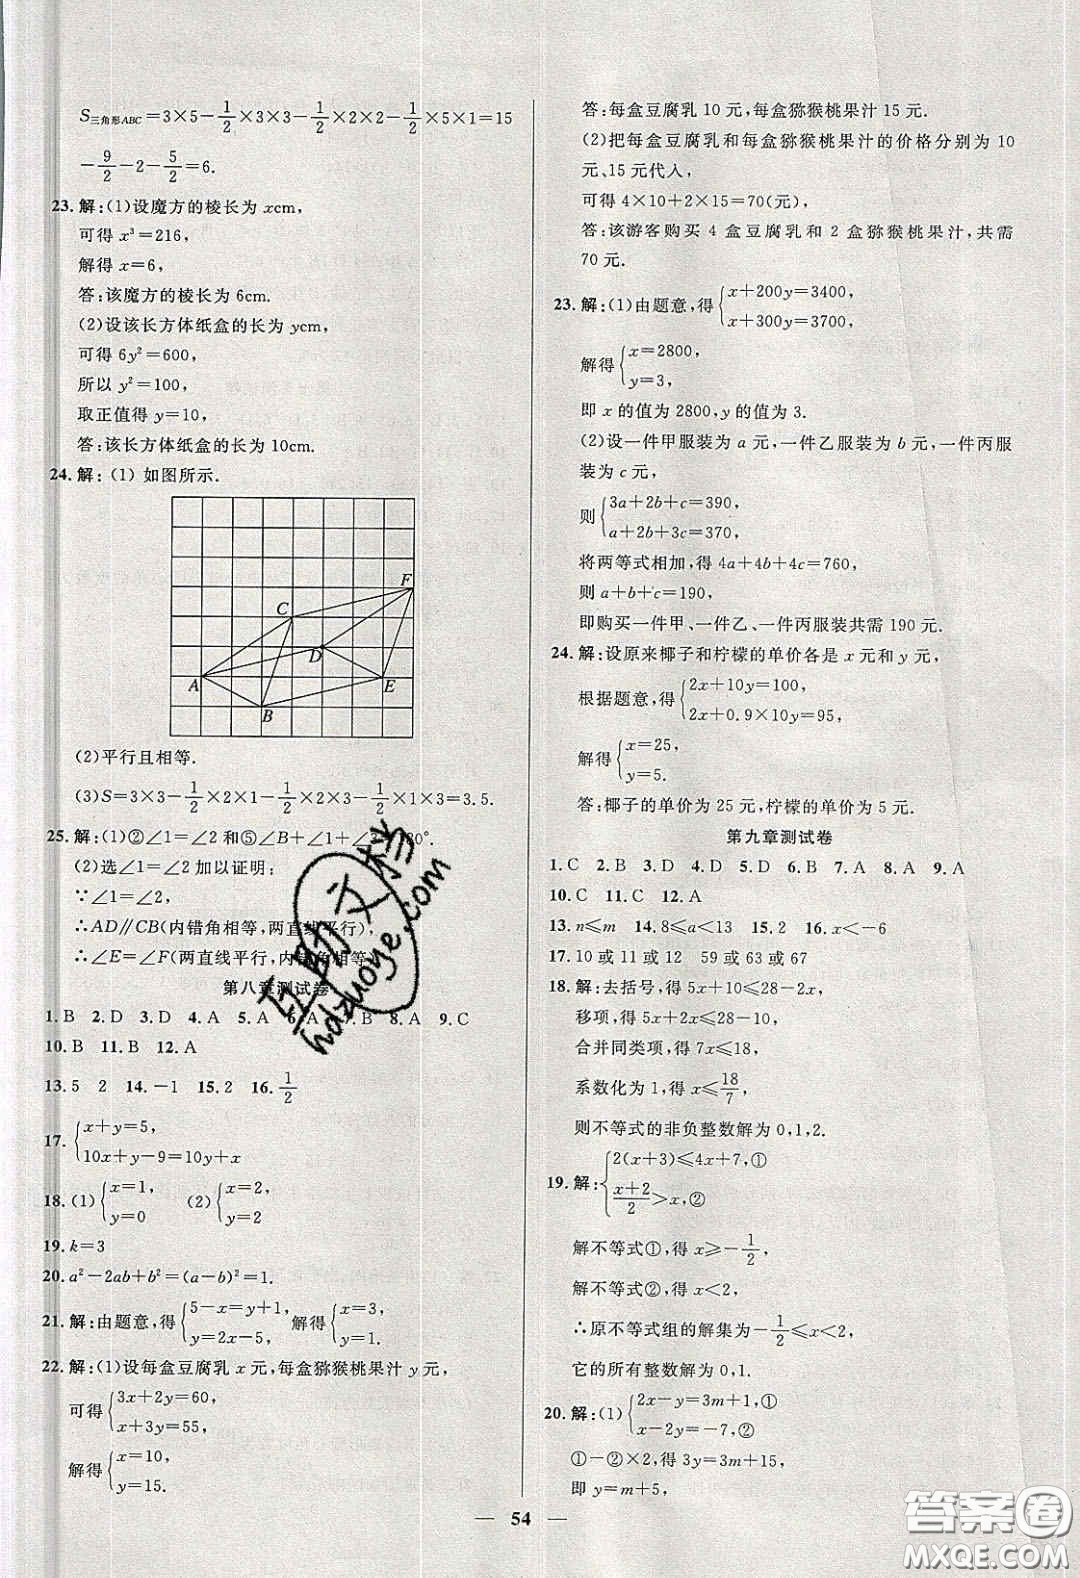 S三角形ABC=3×5-1/2×3×3-1/2×2×2-1/2×5×1=15
-9/2-2-5/2=6.
23.解:(1)设魔方的棱长为xcm,
可得x³=216,
解得x=6,
答:该魔方的棱长为6cm.
(2)设该长方体纸盒的长为ycm,
可得6y²=600,
所以y²=100,
取正值得y=10,
答:该长方体纸盒的长为10cm.
24.解:(1)如图所示.
F
C
D
A
E
B
(2)平行且相等.
(3)S=3×3-1/2×2×1-1/2×2×3-1/2×1×3=3.5.
25.解:(1)②∠1=∠2和⑤∠B+∠1+∠3=180°.
(2)选∠1=∠2加以证明:
∵∠1=∠2,
∴AD∥CB(内错角相等,两直线平行),
∴∠E=∠F(两直线平行,内错角相等)
第八章测试卷
1.B 2.D 3.D 4.A 5.A 6.A 7.B 8.A 9.C
10.B 11.B 12.A
13.5 2 14.-1 15.2 16.1/2
17.{x+y=5,
10x+y-9=10y+x
18.(1){x=1, (2){x=2,
y=0 y=2
19.k=3
20.a²-2ab+b²=(a-b)²=1.
21.解:由题意,得{5-x=y+1, 解得{x=3,
y=2x-5, y=1.
22.解:(1)设每盒豆腐乳x元,每盒猕猴桃果汁y元,
可得{3x+2y=60,
x+3y=55,
解得{x=10,
y=15.
答:每盒豆腐乳10元,每盒猕猴桃果汁15元.
(2)把每盒豆腐乳和每盒猕猴桃果汁的价格分别为10
元、15元代入,
可得4×10+2×15=70(元),
答:该游客购买4盒豆腐乳和2盒猕猴桃果汁,共需
70元.
23.解:(1)由题意,得{x+200y=3400,
x+300y=3700,
解得{x=2800,
y=3,
即x的值为2800,y的值为3.
(2)设一件甲服装为a元,一件乙服装为b元,一件丙服
装为c元,
则{3a+2b+c=390,
a+2b+3c=370,
将两等式相加,得4a+4b+4c=760,
则a+b+c=190,
即购买一件甲、一件乙、一件丙服装共需190元.
24.解:设原来椰子和柠檬的单价各是x元和y元,
根据题意,得{2x+10y=100,
2x+0.9×10y=95,
解得{x=25,
y=5.
答:椰子的单价为25元,柠檬的单价为5元.
第九章测试卷
1.C 2.B 3.D 4.D 5.D 6.B 7.A 8.A 9.A
10.C 11.C 12.A
13.n≤m 14.8≤a<13 15.2 16.x<-6
17.10或11或12 59或63或67
18.解:去括号,得5x+10≤28-2x,
移项,得5x+2x≤28-10,
合并同类项,得7x≤18,
系数化为1,得x≤18/7,
则不等式的非负整数解为0,1,2.
19.解:{2(x+3)≤4x+7,①
x+2/2>x,②
解不等式①,得x≥-1/2,
解不等式②,得x<2,
∴原不等式组的解集为-1/2≤x<2,
它的所有整数解为0,1.
20.解:(1){2x-y=3m+1,①
x-2y=-7,②
①-②×2,得3y=3m+15,
即y=m+5,
54
互助文档
hdzuoye.com
答案圈
MXQE.COM